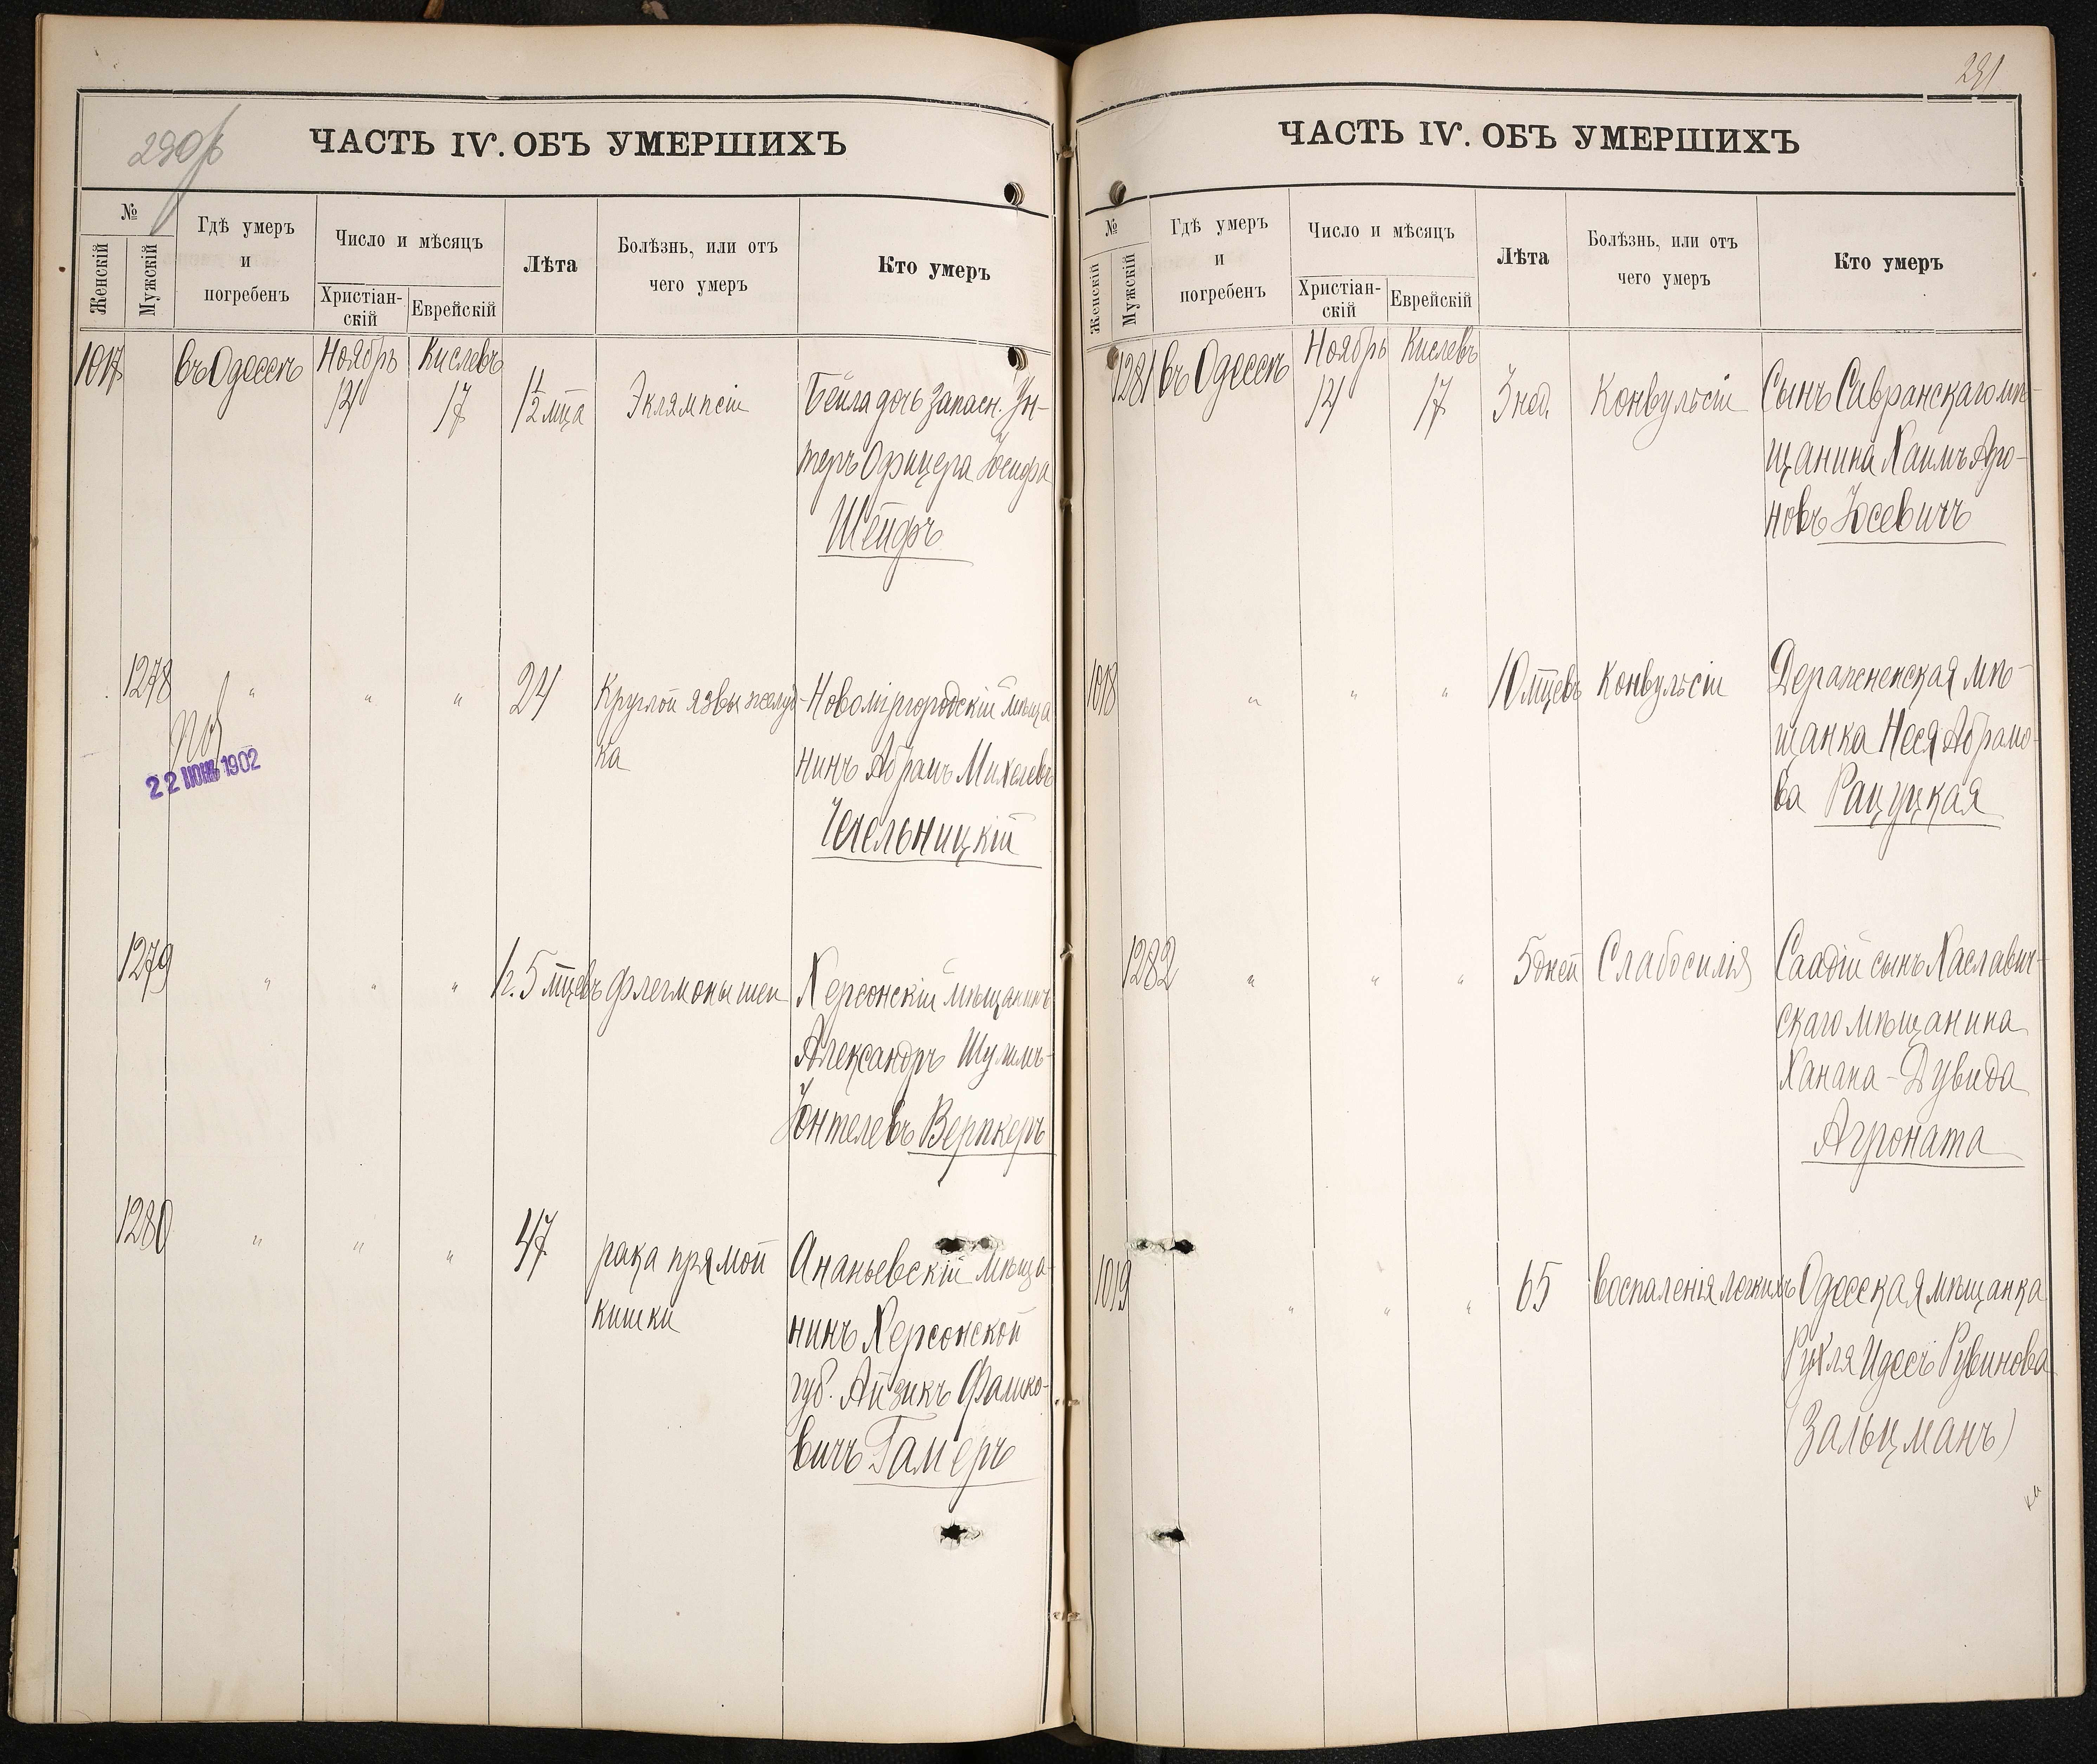 290
ЧАСТЬ IV. ОБЪ УМЕРШИХЪ
№
Женскій
Мужскій
Гдѣ умеръ
и
погребенъ
Число и мѣсяцъ
Христіан-
скій
Еврейскій
Лѣта
Болѣзнь, или отъ
чего умеръ
Кто умеръ
1017 въ Одессѣ Ноябрь 14 Кислевъ 17 1 1/2 мца Эклямпсіи Бейла дочь запасн. Ун-
теръ Офицера Іосифа
Шейфъ
1278 " " " 24 Круглой язвы желуд- Новомиргородскій мѣща
ка нинъ Абрамъ Михелевъ
Чечельницкій
22 ІЮН 1902
1279 " " " 1 г. 5 мцевъ флегмоны шеи Херсонскій мѣщанинъ
Александръ Шулимъ-
Іонтелевъ Верпкеръ
1280 " " " 47 рака прямой Ананьевскій мѣща-
кишки нинъ Херсонской
губ. Айзикъ Фалико-
вичъ Гамеръ
291
ЧАСТЬ IV. ОБЪ УМЕРШИХЪ
№
Женскій
Мужскій
Гдѣ умеръ
и
погребенъ
Число и мѣсяцъ
Христіан-
скій
Еврейскій
Лѣта
Болѣзнь, или отъ
чего умеръ
Кто умеръ
1281 въ Одессѣ Ноябрь 14 Кислевъ 17 3 нед. Конвульсіи Сынъ Савранскаго мѣ-
щанина Хаимъ Аро-
новъ Іосевичъ
1018 " " " 10 мцевъ Конвульсіи Деражненская мѣ-
щанка Неся Абрамо-
ва Рацуцкая
1282 " " " 5 дней Слабосилія Саадій сынъ Хаславич-
скаго мѣщанина
Ханана-Дувида
Агроната
1019 " " " 65 воспаленія легкихъ Одесская мѣщанка
Рухля Идесъ Рувинова
(Зальцманъ)